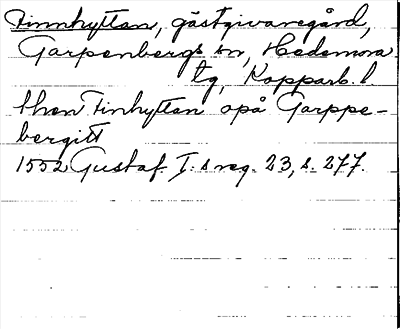 Finnhyttan, gästgivaregård,
Garpenbergs sn, Hedemora
tg, Kopparb. l
then Finhyttan opå Garppe-
bergitt
1552 Gustaf I:s reg. 23, s. 277.